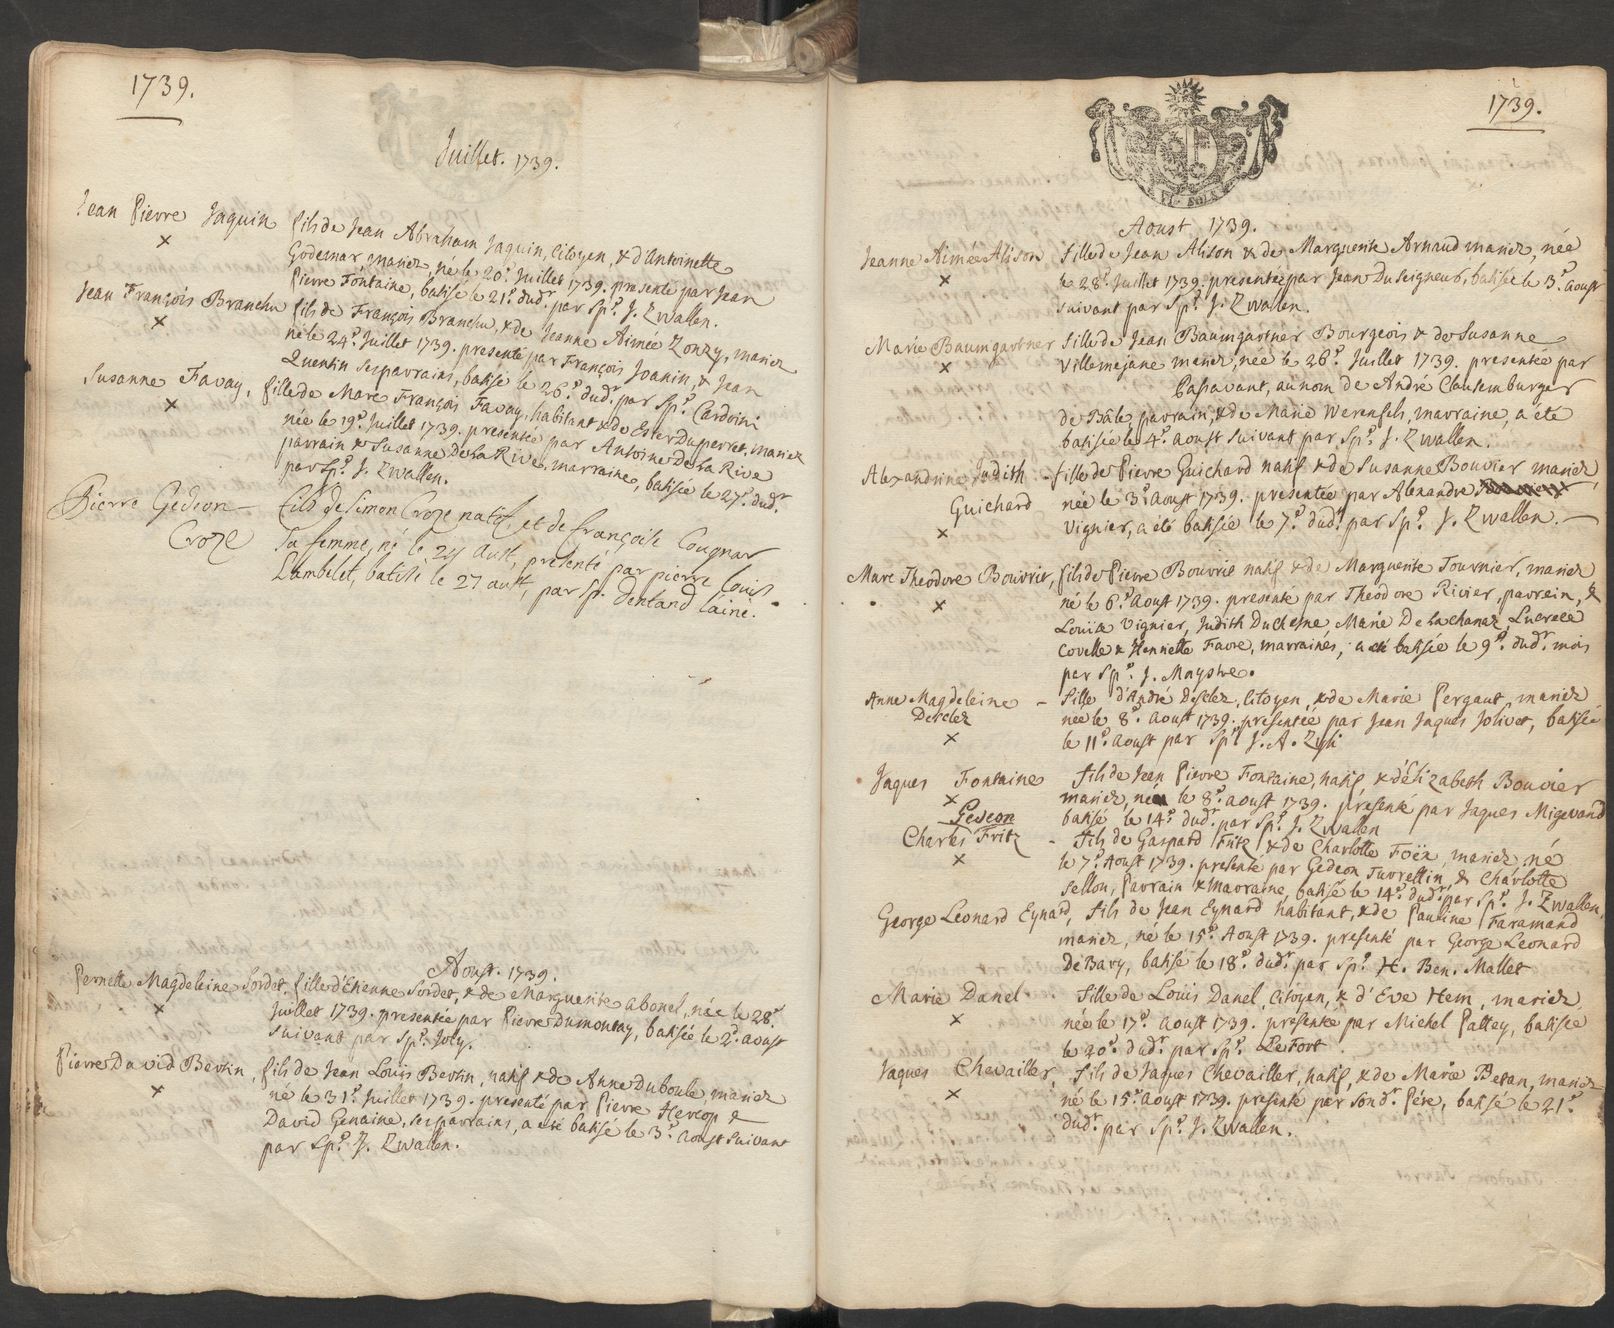 1739.
Juillet. 1739.
Jean Pierre Jaquin fils de Jean Abraham Jaquin, Citoyen, & d'Antoinette
Godemar mariez, né le 20.e Juillet 1739. presenté par Jean
Pierre Fontaine, batisé le 21.e dud.r par Sp.e J. Zwallen.
Jean François Branchu fils de François Branchu, & de Jeanne Aimée Zonzy, mariez
né le 24.e Juillet 1739. presenté par François Joanin, & Jean
Quentin ses parrains, batisé le 26.e dud.r par Sp.e Cardoini
Susanne Favay, fille de Marc François Favay, habitant & de Ester Duperret, mariez
née le 19.e Juillet 1739. presentée par Antoine De la Rive
parrain & Susanne De la Rive, marraine, batisée le 27.e dud.r
par Sp.e J. Zwallen.
Pierre Gedeon – fils de Simon Croze natif, et de françoise Cougnar
Croze sa femme, né le 24 aust, presenté par pierre louis
Lambelet, batisé le 27 aust, par Sp. Dentand l'ainé.
Aoust. 1739.
Pernette Magdeleine Sordet, fille d'Etienne Sordet, & de Marguerite Abonel, née le 28.e
Juillet 1739. presentée par Pierre Dumontay, batisée le 2.e aoust
suivant par Sp.e Joly.
Pierre David Bertin, fils de Jean Louis Bertin, natif & de Anne Duboule, mariez
né le 31.e Juillet 1739. presenté par Pierre Hercop &
David Genaine, ses parrains, a eté batisé le 3.e Aoust suivant
par Sp.e J. Zwallen.
1739.
Aoust 1739.
Jeanne Aimée Alison, fille de Jean Alison & de Marguerite Arnaud mariez, née
le 28.e Juillet 1739. presentée par Jean Duseigneur, batisée le 3.e Aoust
suivant par Sp.e J. Zwallen.
Marie Baumgartner fille de Jean Baumgartner Bourgeois & de Susanne
Villemejane mariez, née le 26.e Juillet 1739. presentée par
Passavant, au nom de André Clausemburger
de Bâle, parrain, & de Marie Werenfels, marraine, a été
batisée le 4.e Aoust suivant par Sp.e J. Zwallen.
Alexandrine Judith – fille de Pierre Guichard natif & de Susanne Bouvier mariez,
Guichard née le 3.e Aoust 1739. presentée par Alexandre
Vignier, a eté batisée le 7.e dud.r par Sp.e J. Zwallen. –
Marc Theodore Bouvrie, fils de Pierre Bouvrie natif & de Marguerite Tournier, mariez
né le 6.e Aoust 1739. presenté par Theodore Rivier, parrein, &
Louise Vignier, Judith Duchesne Marie De la chanaz, Lucrece
Covelle & Henriette Favre, marraines, a eté batisée le 9.e dud.r mois
par Sp.e J. Maystre.
Anne Magdeleine – fille d'André Desclez, Citoyen, & de Marie Pergaut, mariez
Desclez née le 8.e Aoust 1739. presentée par Jean Jaques Jolivet, batisée
le 11.e Aoust par Sp.e J. A. Zysli
Jaques Fontaine fils de Jean Pierre Fontaine, natif, & d'Elizabeth Bouvier
mariez, né le 8.e Aoust 1739. presenté par Jaques Migevand
batisé le 14.e dud.r par Sp.e J. Zwallen
Gedeon
Charles Fritz – fils de Gaspard Fritz & de Charlotte Foëx, mariez, né
le 7.e Aoust 1739. presenté par Gedeon Turrettin, & Charlotte
Sellon, Parrain & Marraine, batisé le 14.e dud.r par Sp.e J. Zwallen.
George Leonard Eynard, fils de Jean Eynard habitant, & de Pauline Faramand
mariez, né le 15.e Aoust 1739. presenté par George Leonard
De Bary, batisé le 18.e dud.r par Sp.e H. Ben. Mallet
Marie Danel fille de Louis Danel, Citoyen, & d'Eve Hem, mariez
née le 17.e Aoust 1739. presentée par Michel Pattey, batisée
le 20.e dud.r par Sp.e Le Fort
Jaques Chevallier, fils de Jaques Chevallier, natif, & de Marie Betan, mariez
né le 15.e Aoust 1739. presenté par Sond.r Père, batisé le 21.e
dud.r par Sp.e J. Zwallen.